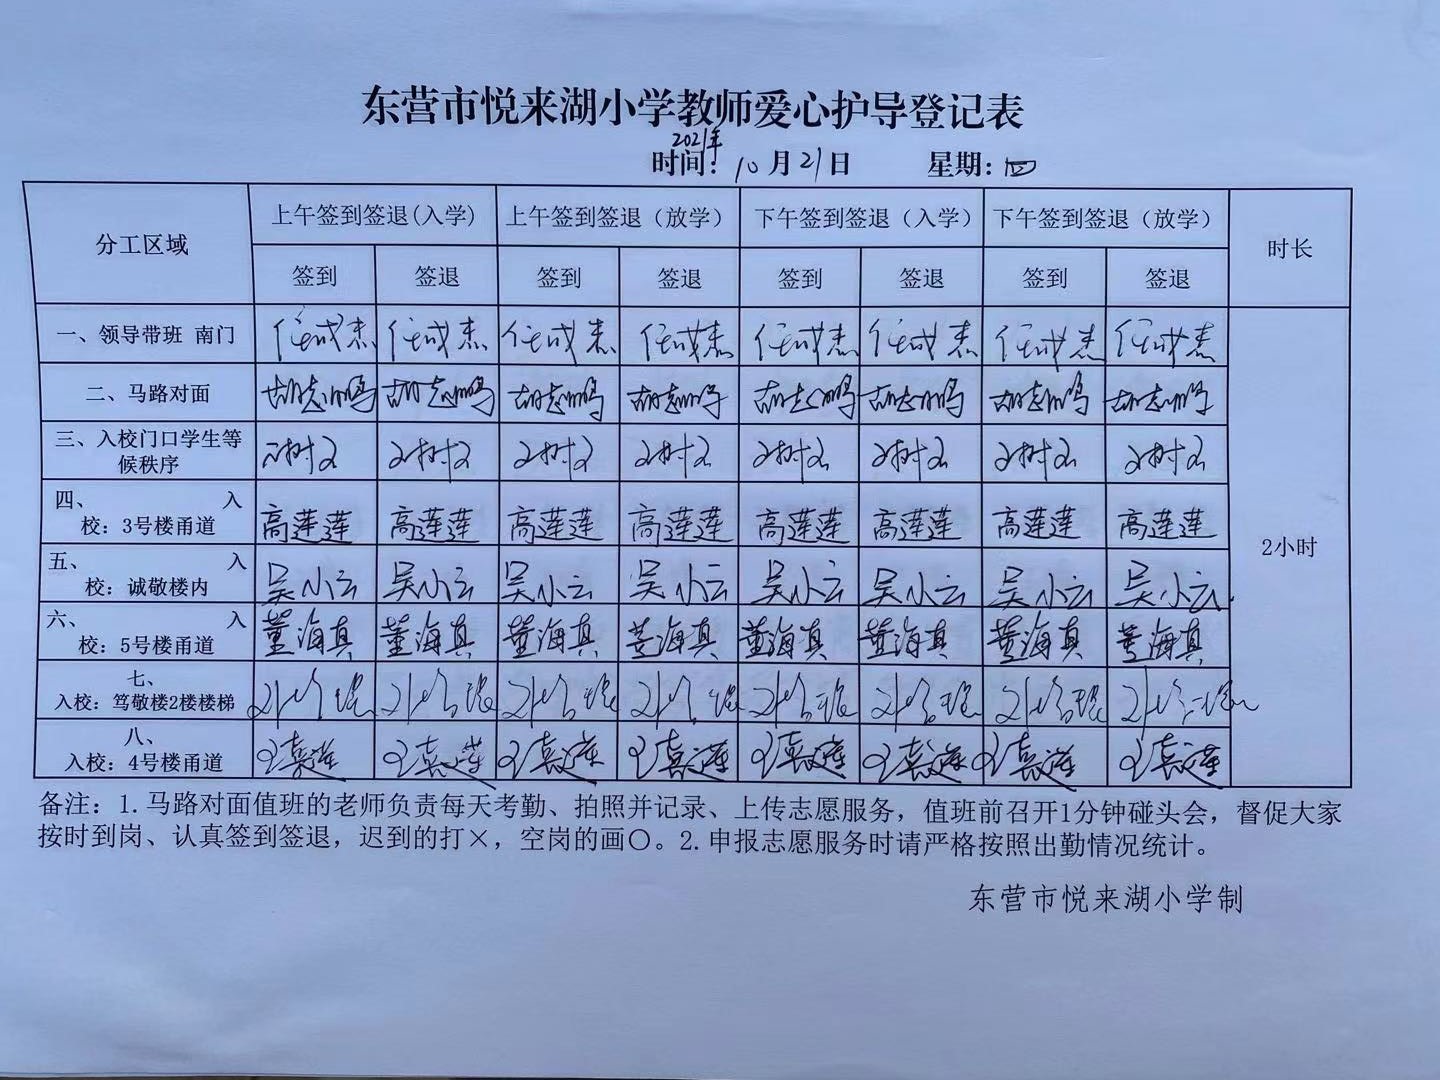 东营市悦来湖小学教师爱心护导登记表
2021年
时间: 10月21日 星期: 四
分工区域 上午签到签退(入学) 上午签到签退（放学） 下午签到签退（入学） 下午签到签退（放学） 时长
签到 签退 签到 签退 签到 签退 签到 签退
一、领导带班 南门 任成杰 任成杰 任成杰 任成杰 任成杰 任成杰 任成杰 任成杰
二、马路对面 胡志鹏 胡志鹏 胡志鹏 胡志鹏 胡志鹏 胡志鹏 胡志鹏 胡志鹏
三、入校门口学生等
候秩序
四、 入
校：3号楼甬道 高莲莲 高莲莲 高莲莲 高莲莲 高莲莲 高莲莲 高莲莲 高莲莲
2小时
五、 入
校：诚敬楼内 吴小云 吴小云 吴小云 吴小云 吴小云 吴小云 吴小云 吴小云
六、 入
校：5号楼甬道 董海真 董海真 董海真 董海真 董海真 董海真 董海真 董海真
七、
入校：笃敬楼2楼楼梯
八、
入校：4号楼甬道
备注：1.马路对面值班的老师负责每天考勤、拍照并记录、上传志愿服务，值班前召开1分钟碰头会，督促大家
按时到岗、认真签到签退，迟到的打×，空岗的画〇。2.申报志愿服务时请严格按照出勤情况统计。
东营市悦来湖小学制